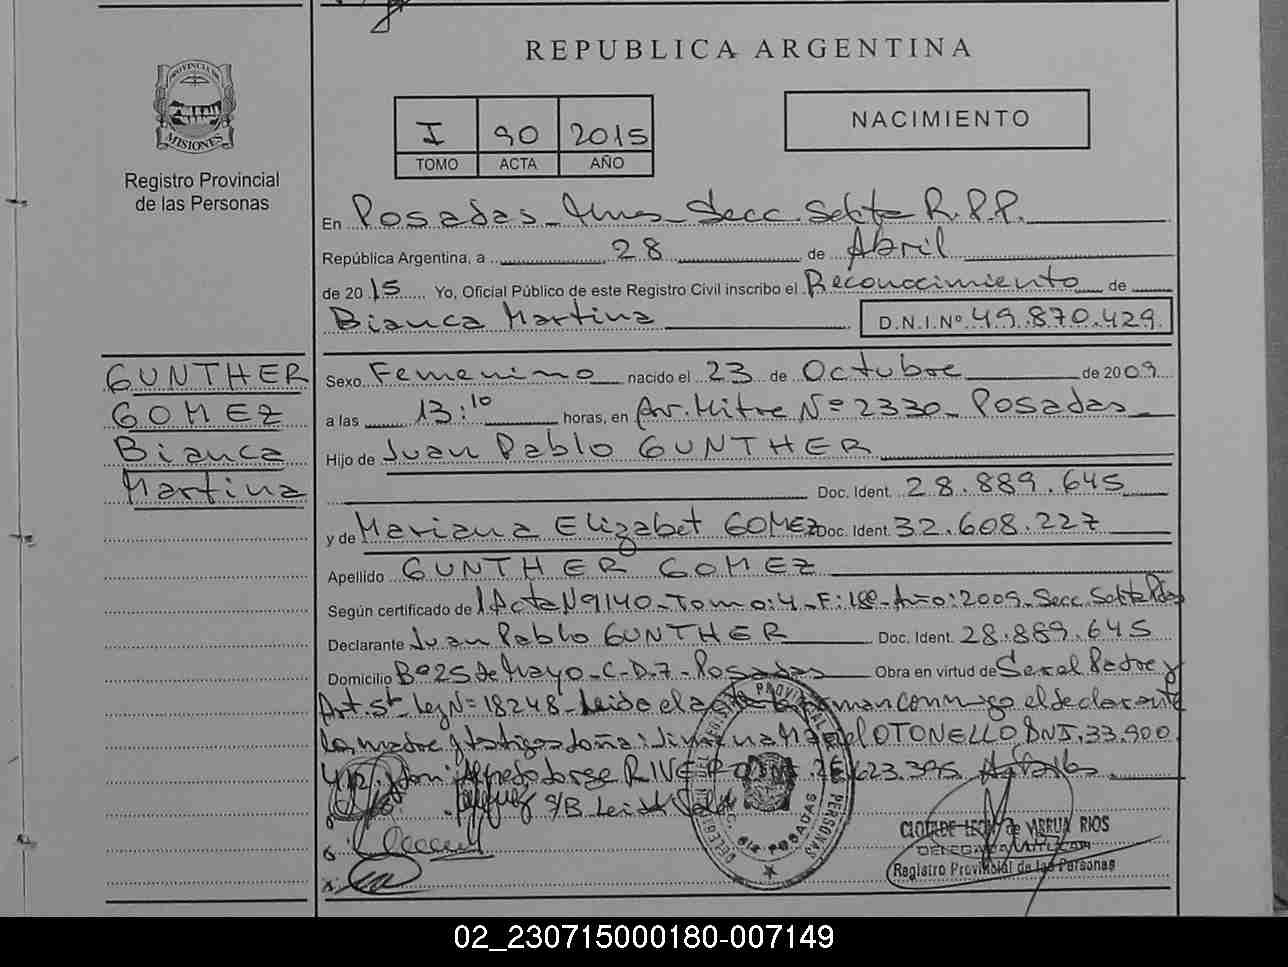 REPUBLICA ARGENTINA
PROVINCIA DE
MISIONES
Registro Provincial
de las Personas
I 90 2015
TOMO ACTA AÑO
NACIMIENTO
En Posadas Secc. Selta R.P.P.
República Argentina, a 28 de Abril
de 2015 Yo, Oficial Público de este Registro Civil inscribo el Reconocimiento de
Bianca Martina D.N.I.Nº 49.870.429
GUNTHER
GOMEZ
Bianca
Martina
Sexo Femenino nacido el 23 de Octubre de 2009
a las 13:10 horas, en Av. Mitre Nº 2330 Posadas
Hijo de Juan Pablo GUNTHER
Doc. Ident. 28.889.645
y de Mariana Elizabet GOMEZ Doc. Ident. 32.608.227
Apellido GUNTHER GOMEZ
Según certificado de Acta Nº 1140 - Tomo: 4 - F: 188 - Año: 2009 - Secc.
Declarante Juan Pablo GUNTHER Doc. Ident. 28.889.645
Domicilio Bº 25 de Mayo - C-D.7 - Posadas Obra en virtud de Ser el Padre y
Art. 5º Ley Nº 18248 - Leido el acta firman conmigo el declarante
la madre y testigos doña OTONELLO DNI. 33.900.
don: Alfredo Jorge RIVERO 26.623.395
S/B
REGISTRO PROVINCIAL
PERSONAS
POSADAS
CLOTILDE LEON de VARRUA RIOS
DELEGADA TITULAR
Registro Provincial de las Personas
02_230715000180-007149